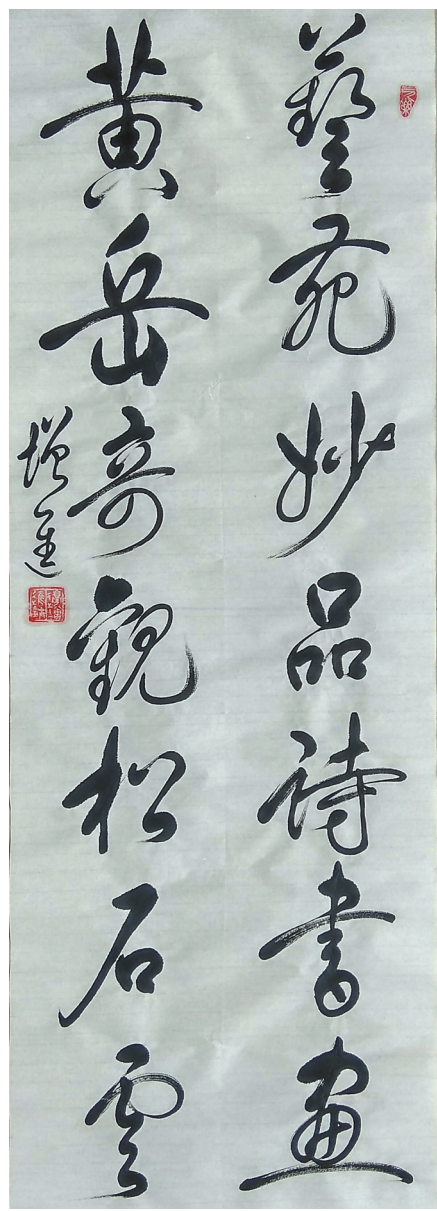 藝苑妙品詩書畫
黃岳奇觀松石雲
增進